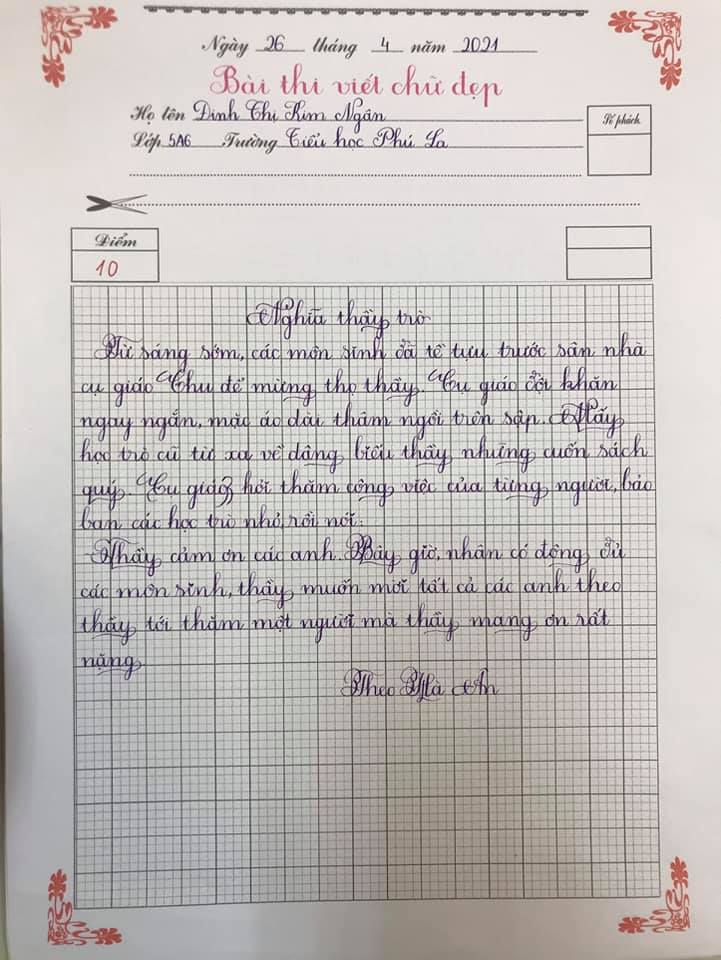 Ngày 26 tháng 4 năm 2021
Bài thi viết chữ đẹp
Họ tên Đinh Thị Kim Ngân
Số phách
Lớp 5A6 Trường Tiểu học Phú La
Điểm
10
Nghĩa thầy trò
Từ sáng sớm, các môn sinh đã tề tựu trước sân nhà
cụ giáo Chu để mừng thọ thầy. Cụ giáo đội khăn
ngay ngắn, mặc áo dài thâm ngồi trên sập. Mấy
học trò cũ từ xa về dâng biếu thầy những cuốn sách
quý. Cụ giáo hỏi thăm công việc của từng người, bảo
ban các học trò nhỏ, rồi nói:
- Thầy cảm ơn các anh. Bây giờ, nhân có đông đủ
các môn sinh, thầy muốn mời tất cả các anh theo
thầy tới thăm một người mà thầy mang ơn rất
nặng
Theo Hà Ân